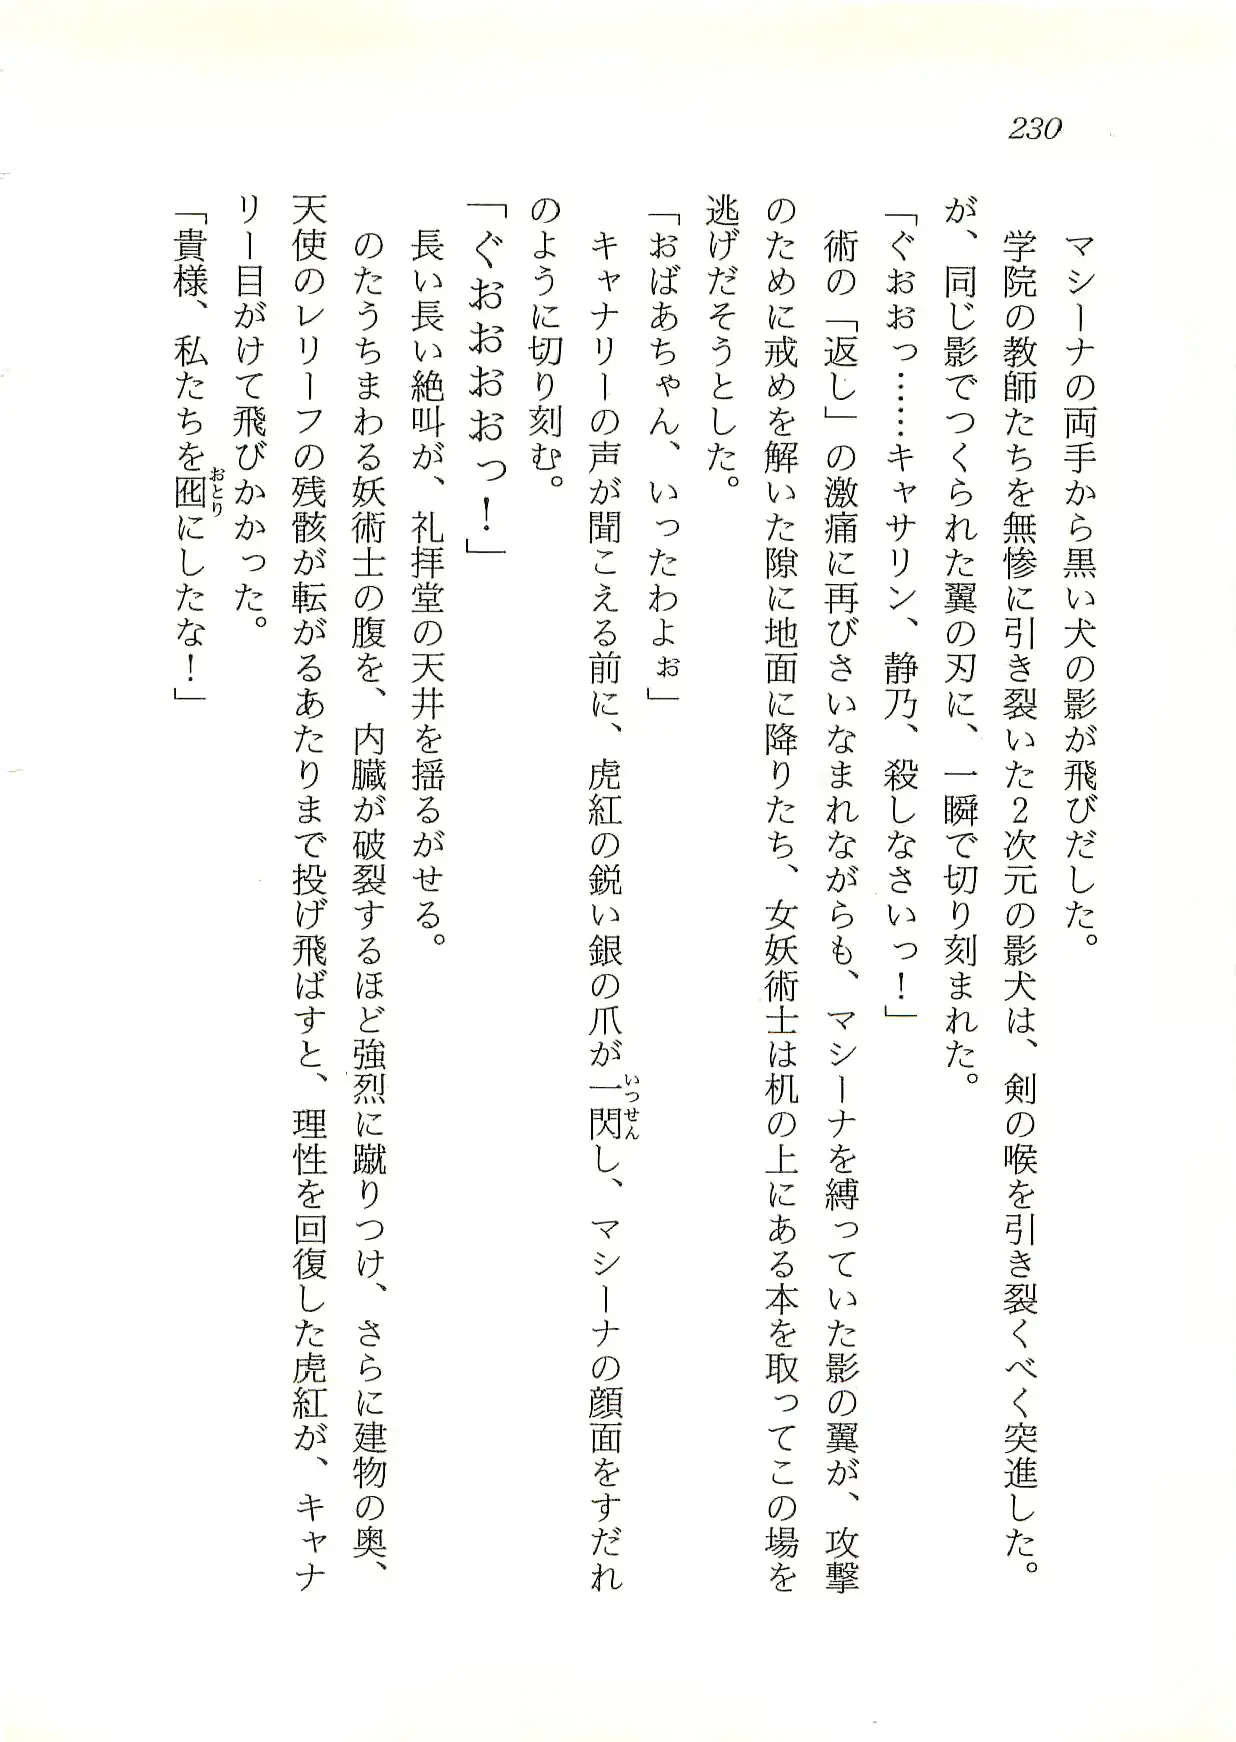 230
マシーナの両手から黒い犬の影が飛びだした。
学院の教師たちを無惨に引き裂いた2次元の影犬は、剣の喉を引き裂くべく突進した。
が、同じ影でつくられた翼の刃に、一瞬で切り刻まれた。
「ぐおおっ……キャサリン、静乃、殺しなさいっ！」
術の「返し」の激痛に再びさいなまれながらも、マシーナを縛っていた影の翼が、攻撃
のために戒めを解いた隙に地面に降りたち、女妖術士は机の上にある本を取ってこの場を
逃げだそうとした。
「おばあちゃん、いったわよぉ」
キャナリーの声が聞こえる前に、虎紅の鋭い銀の爪が一閃し、マシーナの顔面をすだれ
いっせん
のように切り刻む。
「ぐおおおおっ！」
長い長い絶叫が、礼拝堂の天井を揺るがせる。
のたうちまわる妖術士の腹を、内臓が破裂するほど強烈に蹴りつけ、さらに建物の奥、
天使のレリーフの残骸が転がるあたりまで投げ飛ばすと、理性を回復した虎紅が、キャナ
リー目がけて飛びかかった。
「貴様、私たちを囮にしたな！」
おとり